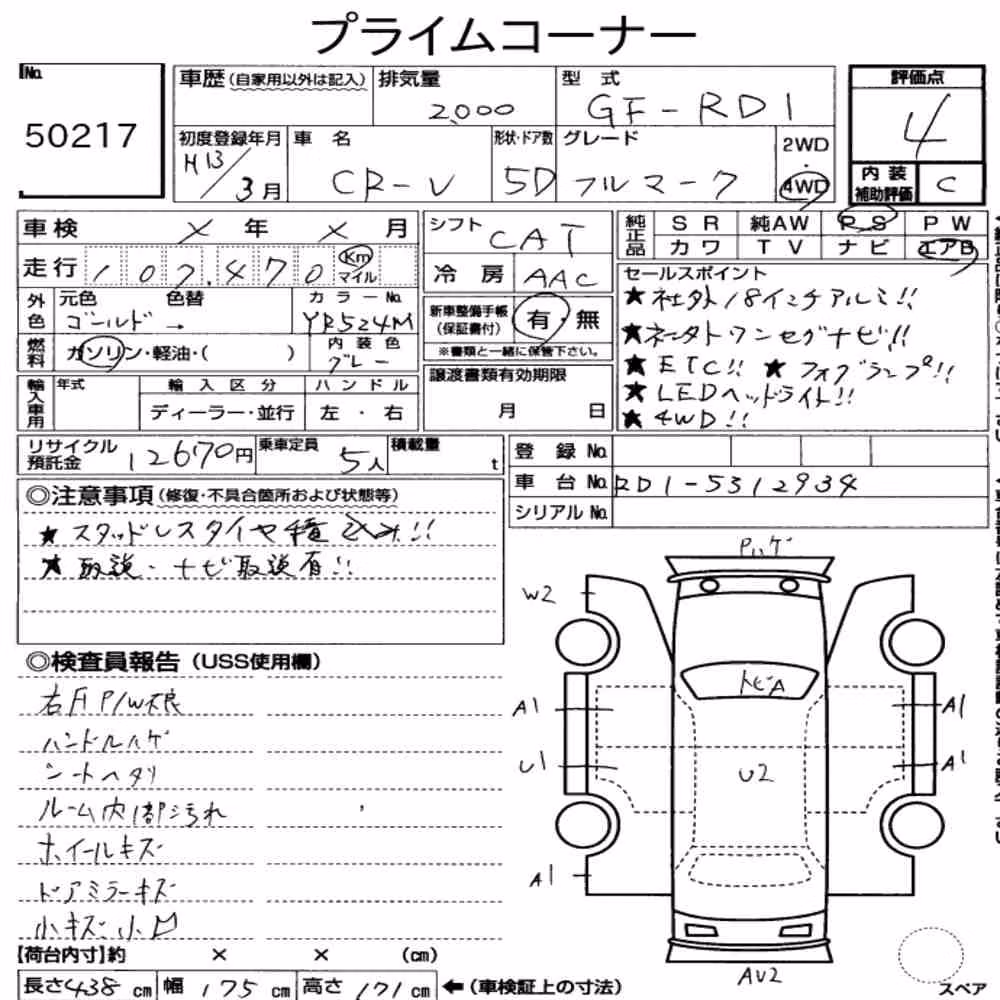 プライムコーナー
No. 50217
車歴 (自家用以外は記入)
排気量 2,000
型式 GF-RD1
評価点 4
内装補助評価 C
初度登録年月 H13/3月
車名 CR-V
形状・ドア数 5D
グレード フルマーク
2WD・4WD
車検 × 年 × 月
走行 107,470 Km マイル
シフト CAT
冷房 AAC
純正品 SR 純AW PS PW
カワ TV ナビ エアB
外色 元色 ゴールド → 色替
カラーNo. YR524M
燃料 ガソリン・軽油・( )
内装色 グレー
新車整備手帳(保証書付) 有・無
※書類と一緒に保管下さい。
セールスポイント
★社外18インチアルミ!!
★ネータトワンセグナビ!!
★ETC!! ★フォグランプ!!
★LEDヘッドライト!!
★4WD!!
輸入車用 年式 輸入区分 ハンドル
ディーラー・並行 左・右
譲渡書類有効期限
月 日
リサイクル預託金 12670円
乗車定員 5人
積載量 t
登録No.
車台No. RD1-5312934
シリアルNo.
◎注意事項 (修復・不具合箇所および状態等)
★スタッドレスタイヤ積込み!!
★取説・ナビ取説有!!
◎検査員報告 (USS使用欄)
右F P/W不良
ハンドルハゲ
シートヘタリ
ルーム内部汚れ
ホイールキズ
ドアミラーキズ
小キズ小凹
Pハゲ
W2
トビA
A1
A1
U1
U2
A1
A1
AU2
スペア
【荷台内寸】約 × × (cm)
長さ438cm 幅175cm 高さ171cm ←(車検証上の寸法)